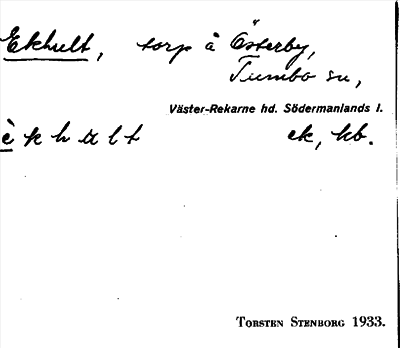 Ekhult, torp å Österby,
Tumbo sn,
Väster-Rekarne hd. Södermanlands l.
èkhult ek, kb.
TORSTEN STENBORG 1933.